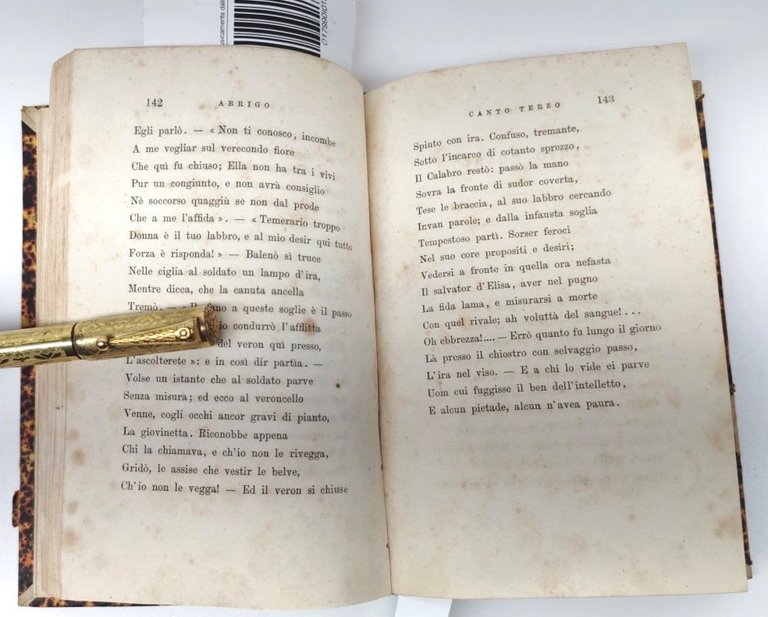 142 ARRIGO
Egli parlò. — « Non ti conosco, incombe
A me vegliar sul verecondo fiore
Che quì fu chiuso; Ella non ha tra i vivi
Pur un congiunto, e non avrà consiglio
Nè soccorso quaggiù se non dal prode
Che a me l'affida ». — « Temerario troppo
Donna è il tuo labbro, e al mio desir qui tutto
Forza è risponda! » — Balenò sì truce
Nelle ciglia al soldato un lampo d'ira,
Mentre dicea, che la canuta ancella
Tremò. — a queste soglie è il passo
io condurrò l'afflitta
del veron quì presso,
L'ascolterete »: e in così dir partìa. —
Volse un istante che al soldato parve
Senza misura; ed ecco al veroncello
Venne, cogli occhi ancor gravi di pianto,
La giovinetta. Riconobbe appena
Chi la chiamava, e ch'io non le rivegga,
Gridò, le assise che vestir le belve,
Ch'io non le vegga! — Ed il veron si chiuse
CANTO TERZO 143
Spinto con ira. Confuso, tremante,
Sotto l'incarco di cotanto sprezzo,
Il Calabro restò: passò la mano
Sovra la fronte di sudor coverta,
Tese le braccia, al suo labbro cercando
Invan parole; e dalla infausta soglia
Tempestoso partì. Sorser feroci
Nel suo core propositi e desiri;
Vedersi a fronte in quella ora nefasta
Il salvator d'Elisa, aver nel pugno
La fida lama, e misurarsi a morte
Con quel rivale; ah voluttà del sangue!...
Oh ebbrezza!.... — Errò quanto fu lungo il giorno
Là presso il chiostro con selvaggio passo,
L'ira nel viso. — E a chi lo vide ei parve
Uom cui fuggisse il ben dell'intelletto,
E alcun pietade, alcun n'avea paura.